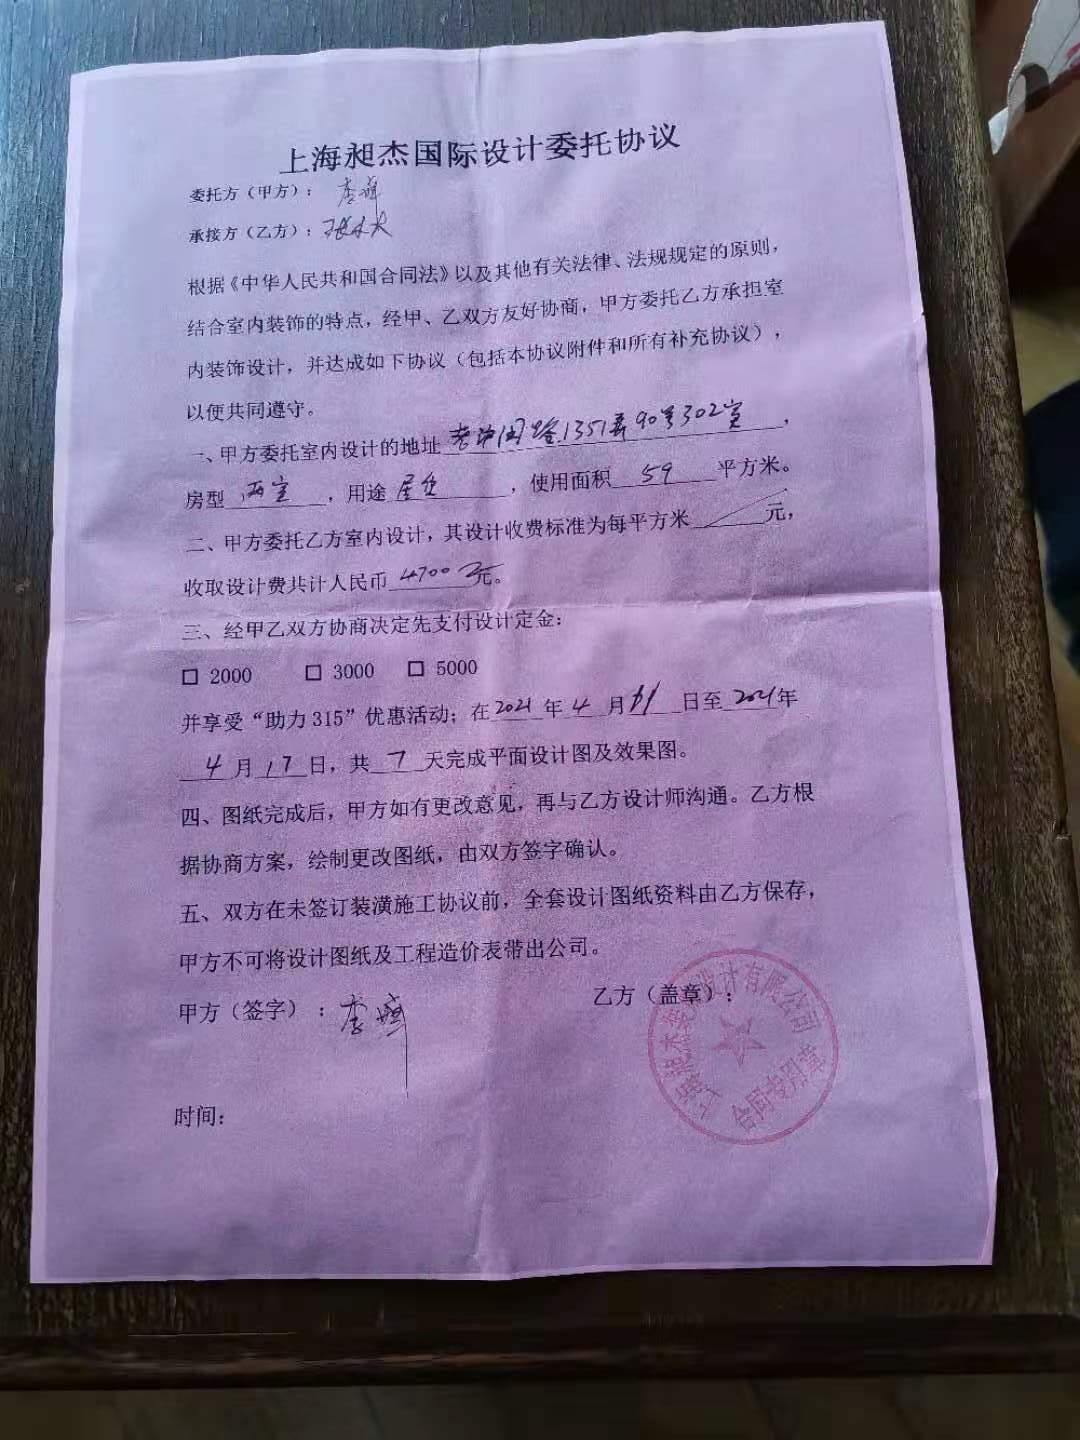 上海昶杰国际设计委托协议
委托方（甲方）：李
承接方（乙方）：张
根据《中华人民共和国合同法》以及其他有关法律、法规规定的原则，
结合室内装饰的特点，经甲、乙双方友好协商，甲方委托乙方承担室
内装饰设计，并达成如下协议（包括本协议附件和所有补充协议），
以便共同遵守。
一、甲方委托室内设计的地址 老沪闵路1351弄90号302室，
房型 两室，用途 居住，使用面积 59 平方米。
二、甲方委托乙方室内设计，其设计收费标准为每平方米 / 元，
收取设计费共计人民币 4700 元。
三、经甲乙双方协商决定先支付设计定金：
□ 2000 □ 3000 □ 5000
并享受“助力315”优惠活动；在 2021 年 4 月 11 日至 2021 年
4 月 17 日，共 7 天完成平面设计图及效果图。
四、图纸完成后，甲方如有更改意见，再与乙方设计师沟通。乙方根
据协商方案，绘制更改图纸，由双方签字确认。
五、双方在未签订装潢施工协议前，全套设计图纸资料由乙方保存，
甲方不可将设计图纸及工程造价表带出公司。
甲方（签字）：李 乙方（盖章）：
上海昶杰装饰设计有限公司
合同专用章
时间：